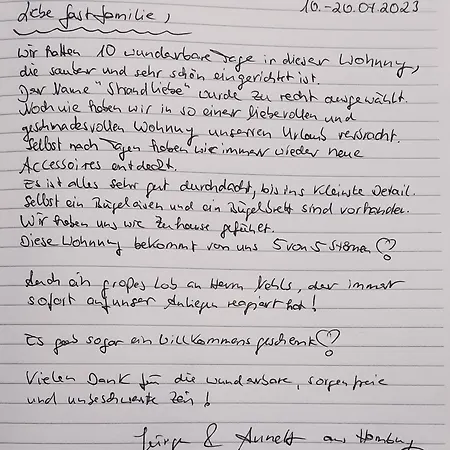 10.-20.07.2023
Liebe Gastfamilie,
Wir hatten 10 wunderbare Tage in dieser Wohnung,
die sauber und sehr schön eingerichtet ist.
Der Name "Strandliebe" wurde zu recht ausgewählt.
Noch nie haben wir in so einer liebevollen und
geschmacksvollen Wohnung unseren Urlaub verbracht.
Selbst nach Tagen haben wir immer wieder neue
Accessoires entdeckt.
Es ist alles sehr gut durchdacht, bis ins kleinste Detail.
Selbst ein Bügeleisen und ein Bügelbrett sind vorhanden.
Wir haben uns wie zuhause gefühlt.
Diese Wohnung bekommt von uns 5 von 5 Sternen
Auch ein großes Lob an Herrn, der immer
sofort auf unser Anliegen reagiert hat!
Es gab sogar ein Willkommensgeschenk
Vielen Dank für die wunderbare, sorgenfreie
und unbeschwerte Zeit!
& Annett aus Hamburg